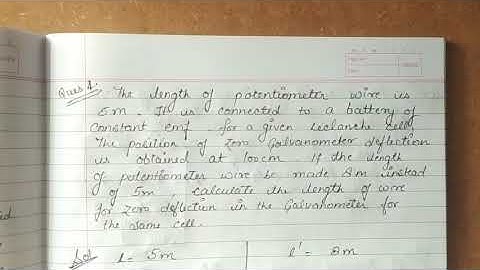 Ques 1: The length of potentiometer wire is
5m. It is connected to a battery of
constant emf. for a given Leclanche cell,
The position of zero Galvanometer deflection
is obtained at 100cm. If the length
of potentiometer wire be made 8m instead
of 5m, calculate the length of wire
for zero deflection in the Galvanometer for
the same cell.
Sol l = 5m l' = 8m